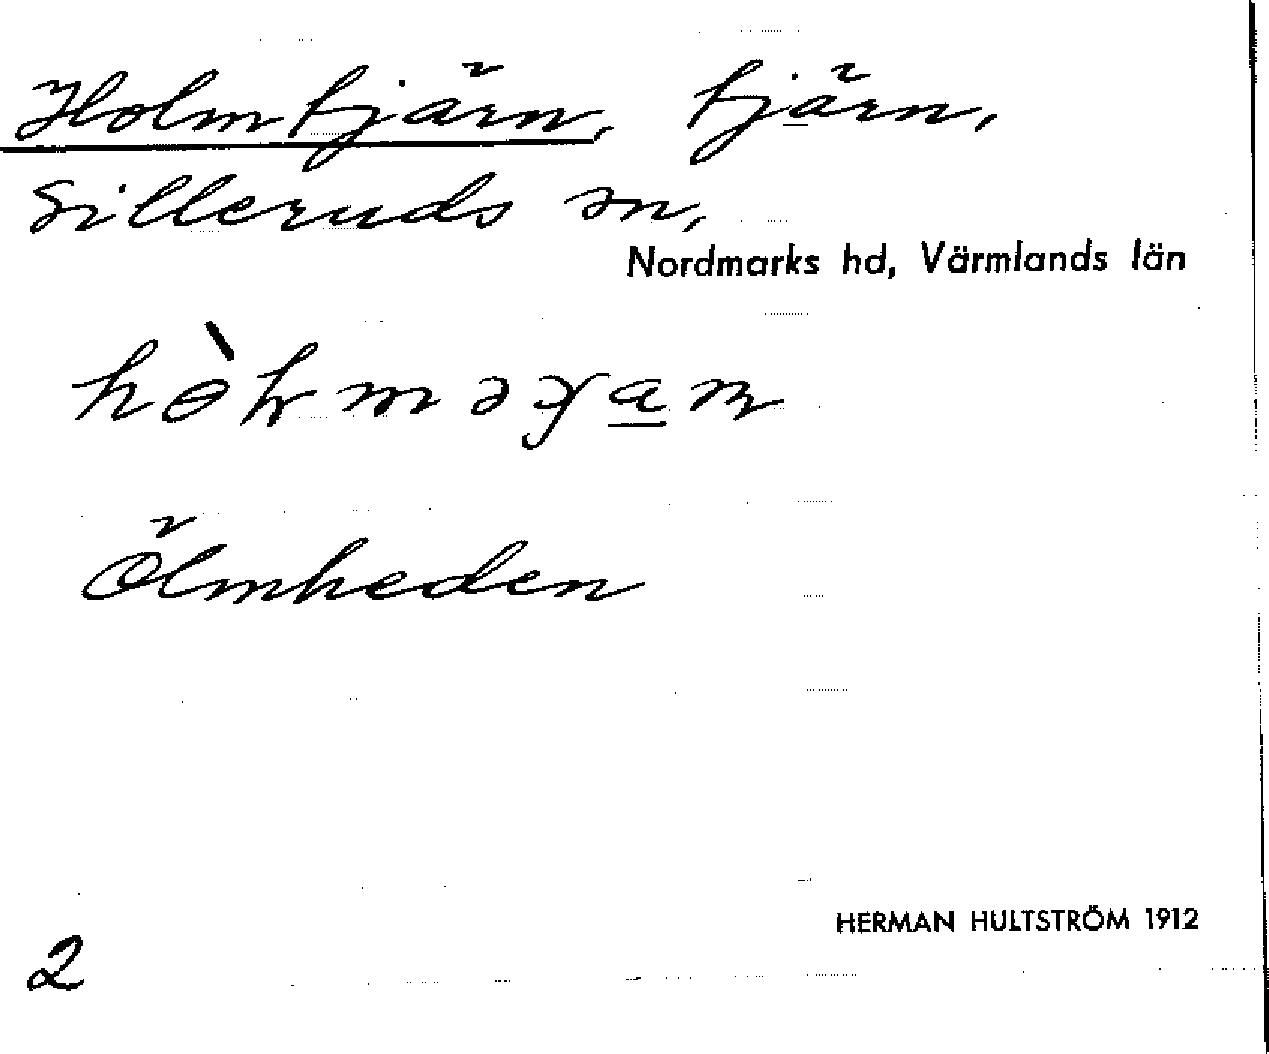 Holmtjärn, tjärn,
Silleruds sn,
Nordmarks hd, Värmlands län
Ölmheden
HERMAN HULTSTRÖM 1912
2